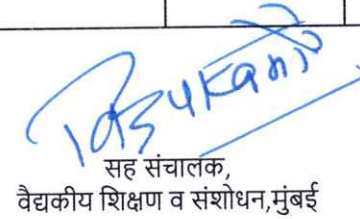 सह संचालक,
वैद्यकीय शिक्षण व संशोधन,मुंबई